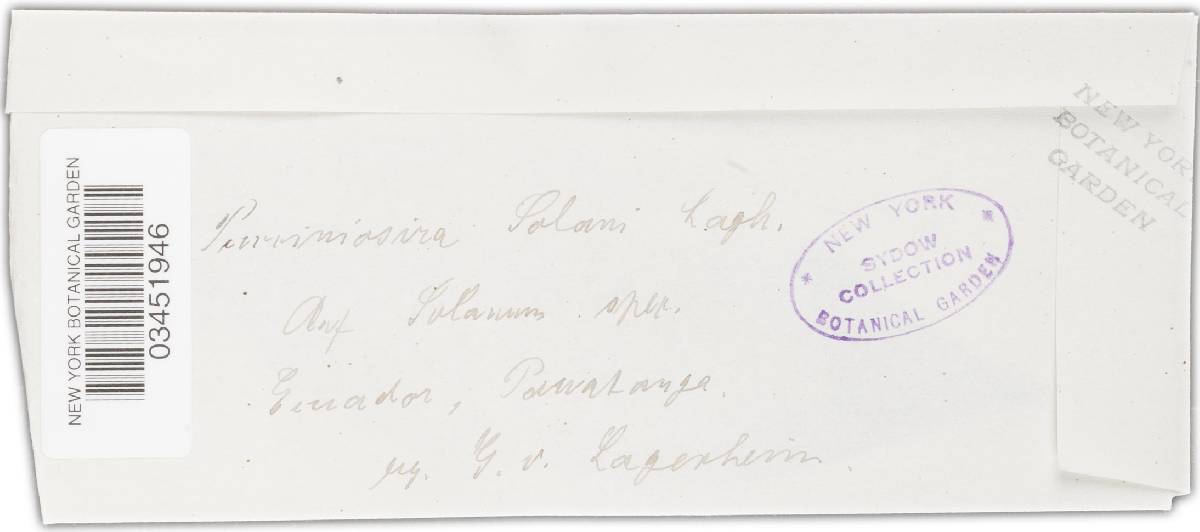 NEW YORK BOTANICAL GARDEN
03451946
Pucciniosira Solani Lagh.
Auf Solanum spec.
Ecuador, Pawatanga.
leg. G. v. Lagerheim.
NEW YORK
SYDOW
COLLECTION
BOTANICAL GARDEN
NEW YORK
BOTANICAL
GARDEN